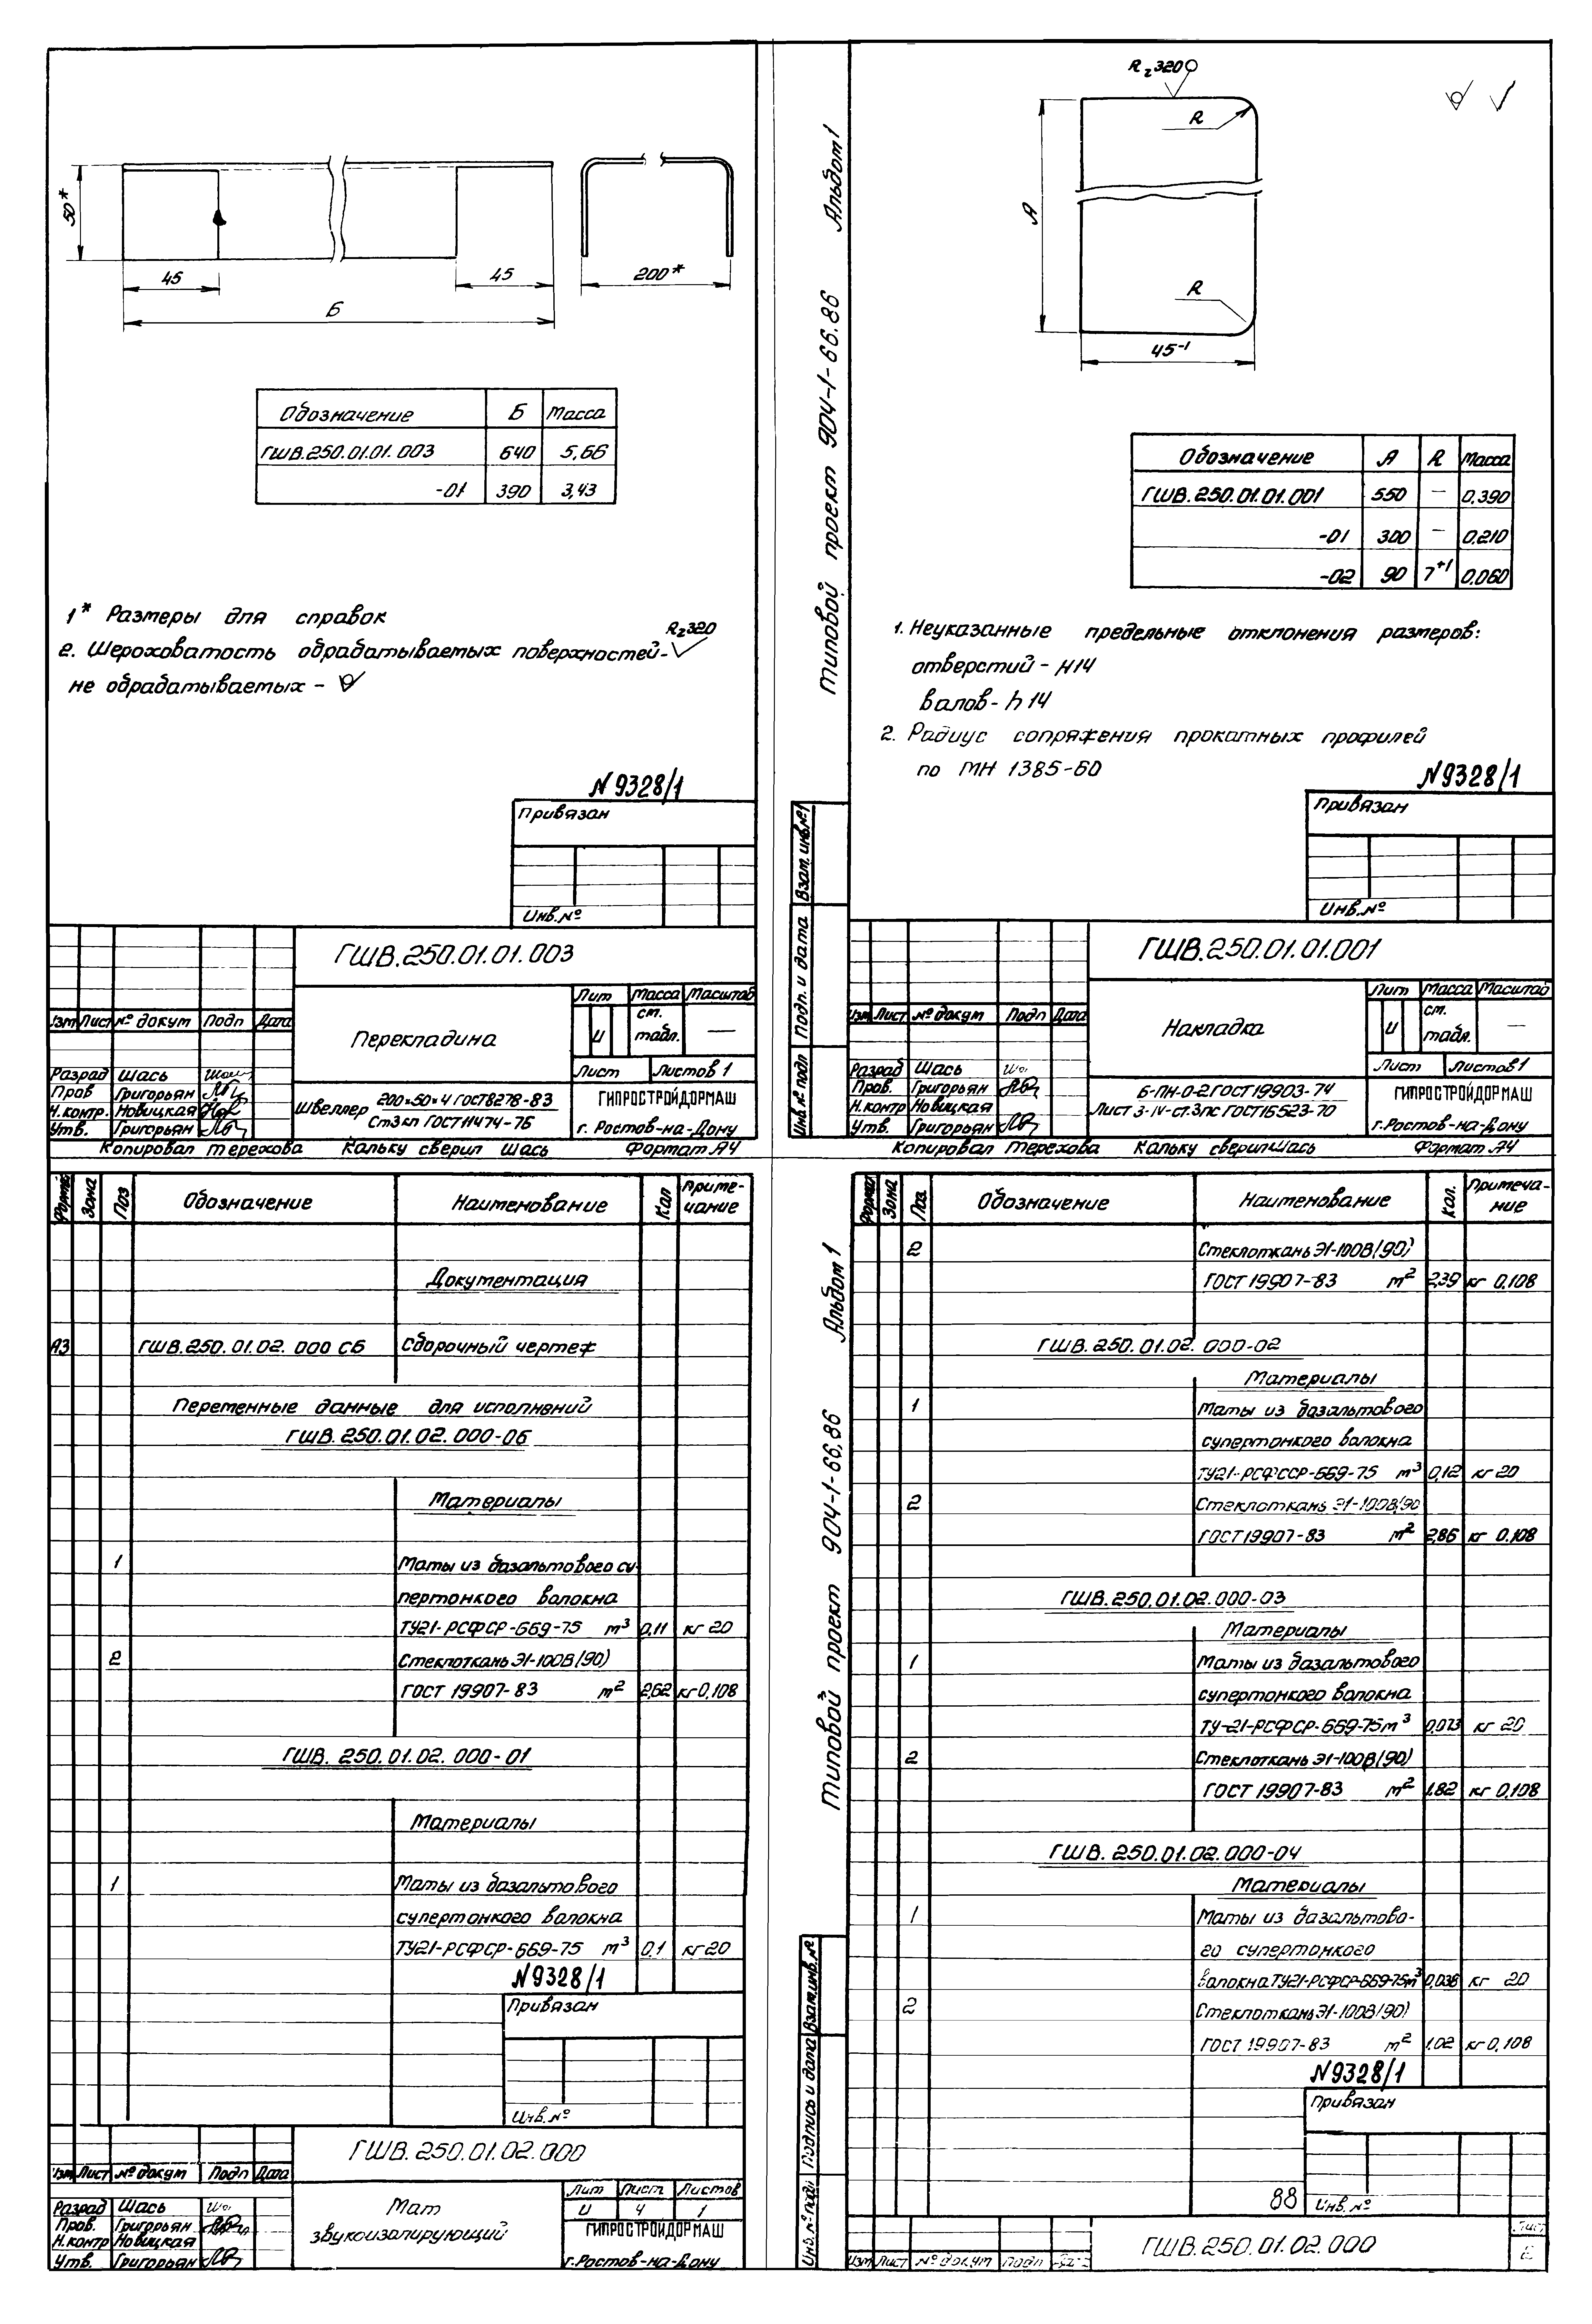 50*
45
45
Б
200*
Обозначение Б Масса
ГШВ.250.01.01.003 640 5,66
-01 390 3,43
1* Размеры для справок
2. Шероховатость обрабатываемых поверхностей- Rz320
не обрабатываемых -
N 9328/1
Привязан
Инв.№
ГШВ.250.01.01.003
Изм Лист № докум Подп Дата
Разраб Шась
Пров Григорьян
Н.контр. Новицкая
Утв. Григорьян
Перекладина
Лит Масса Масштаб
И ст. табл. —
Лист Листов 1
Швеллер 200×50×4 ГОСТ8278-83
Ст3кп ГОСТ11474-76
ГИПРОСТРОЙДОРМАШ
г. Ростов-на-Дону
Копировал Терехова Кальку сверил Шась Формат А4
Типовой проект 904-1-66.86 Альбом 1
Rz320
R
А
R
45-1
Обозначение А R Масса
ГШВ.250.01.01.001 550 — 0,390
-01 300 — 0,210
-02 90 7+1 0,060
1. Неуказанные предельные отклонения размеров:
отверстий - H14
валов - h14
2. Радиус сопряжения прокатных профилей
по МН 1385-60
N9328/1
Привязан
Инв.№
Инв № подл Подп. и дата Взам. инв.№
ГШВ.250.01.01.001
Изм Лист № докум Подп Дата
Разраб Шась
Пров. Григорьян
Н.контр Новицкая
Утв. Григорьян
Накладка
Лит Масса Масштаб
И ст. табл. —
Лист Листов 1
Б-ПН-О-2 ГОСТ19903-74
Лист 3-IV-ст.3пс ГОСТ16523-70
ГИПРОСТРОЙДОРМАШ
г.Ростов-на-Дону
Копировал Терехова Кальку сверил Шась Формат А4
Формат Зона Поз Обозначение Наименование Кол Примечание
Документация
А3 ГШВ.250.01.02.000 СБ Сборочный чертеж
Переменные данные для исполнений
ГШВ.250.01.02.000-06
Материалы
1 Маты из базальтового су-
пертонкого волокна
ТУ21-РСФСР-669-75 м3 0,11 кг 20
2 Стеклоткань Э1-100В(90)
ГОСТ 19907-83 м2 2,62 кг 0,108
ГШВ.250.01.02.000-01
Материалы
1 Маты из базальтового
супертонкого волокна
ТУ21-РСФСР-669-75 м3 0,1 кг 20
N9328/1
Привязан
Инв.№
ГШВ.250.01.02.000
Изм Лист № докум Подп Дата
Разраб Шась
Пров. Григорьян
Н.контр Новицкая
Утв. Григорьян
Мат
звукоизолирующий
Лит Лист Листов
И Ч 1
ГИПРОСТРОЙДОРМАШ
г.Ростов-на-Дону
Типовой проект 904-1-66.86 Альбом 1
Формат Зона Поз. Обозначение Наименование Кол. Примечание
2 Стеклоткань Э1-100В(90)
ГОСТ 19907-83 м2 2,39 кг 0.108
ГШВ.250.01.02.000-02
Материалы
1 Маты из базальтового
супертонкого волокна
ТУ21-РСФССР-669-75 м3 0,12 кг 20
2 Стеклоткань Э1-100В(90
ГОСТ19907-83 м2 2,86 кг 0.108
ГШВ.250.01.02.000-03
Материалы
1 Маты из базальтового
супертонкого волокна
ТУ-21-РСФСР-669-75 м3 0,073 кг 20
2 Стеклоткань Э1-100В(90)
ГОСТ 19907-83 м2 1.82 кг 0,108
ГШВ.250.01.02.000-04
Материалы
1 Маты из базальтово-
го супертонкого
волокна ТУ21-РСФСР-669-75 м3 0,036 кг 20
2 Стеклоткань Э1-100В(90)
ГОСТ 19907-83 м2 1.02 кг 0,108
N9328/1
Привязан
88
Инв.№
Инв.№ подл Подпись и дата Взам.инв.№
Изм Лист № докум Подп
ГШВ.250.01.02.000
Лист